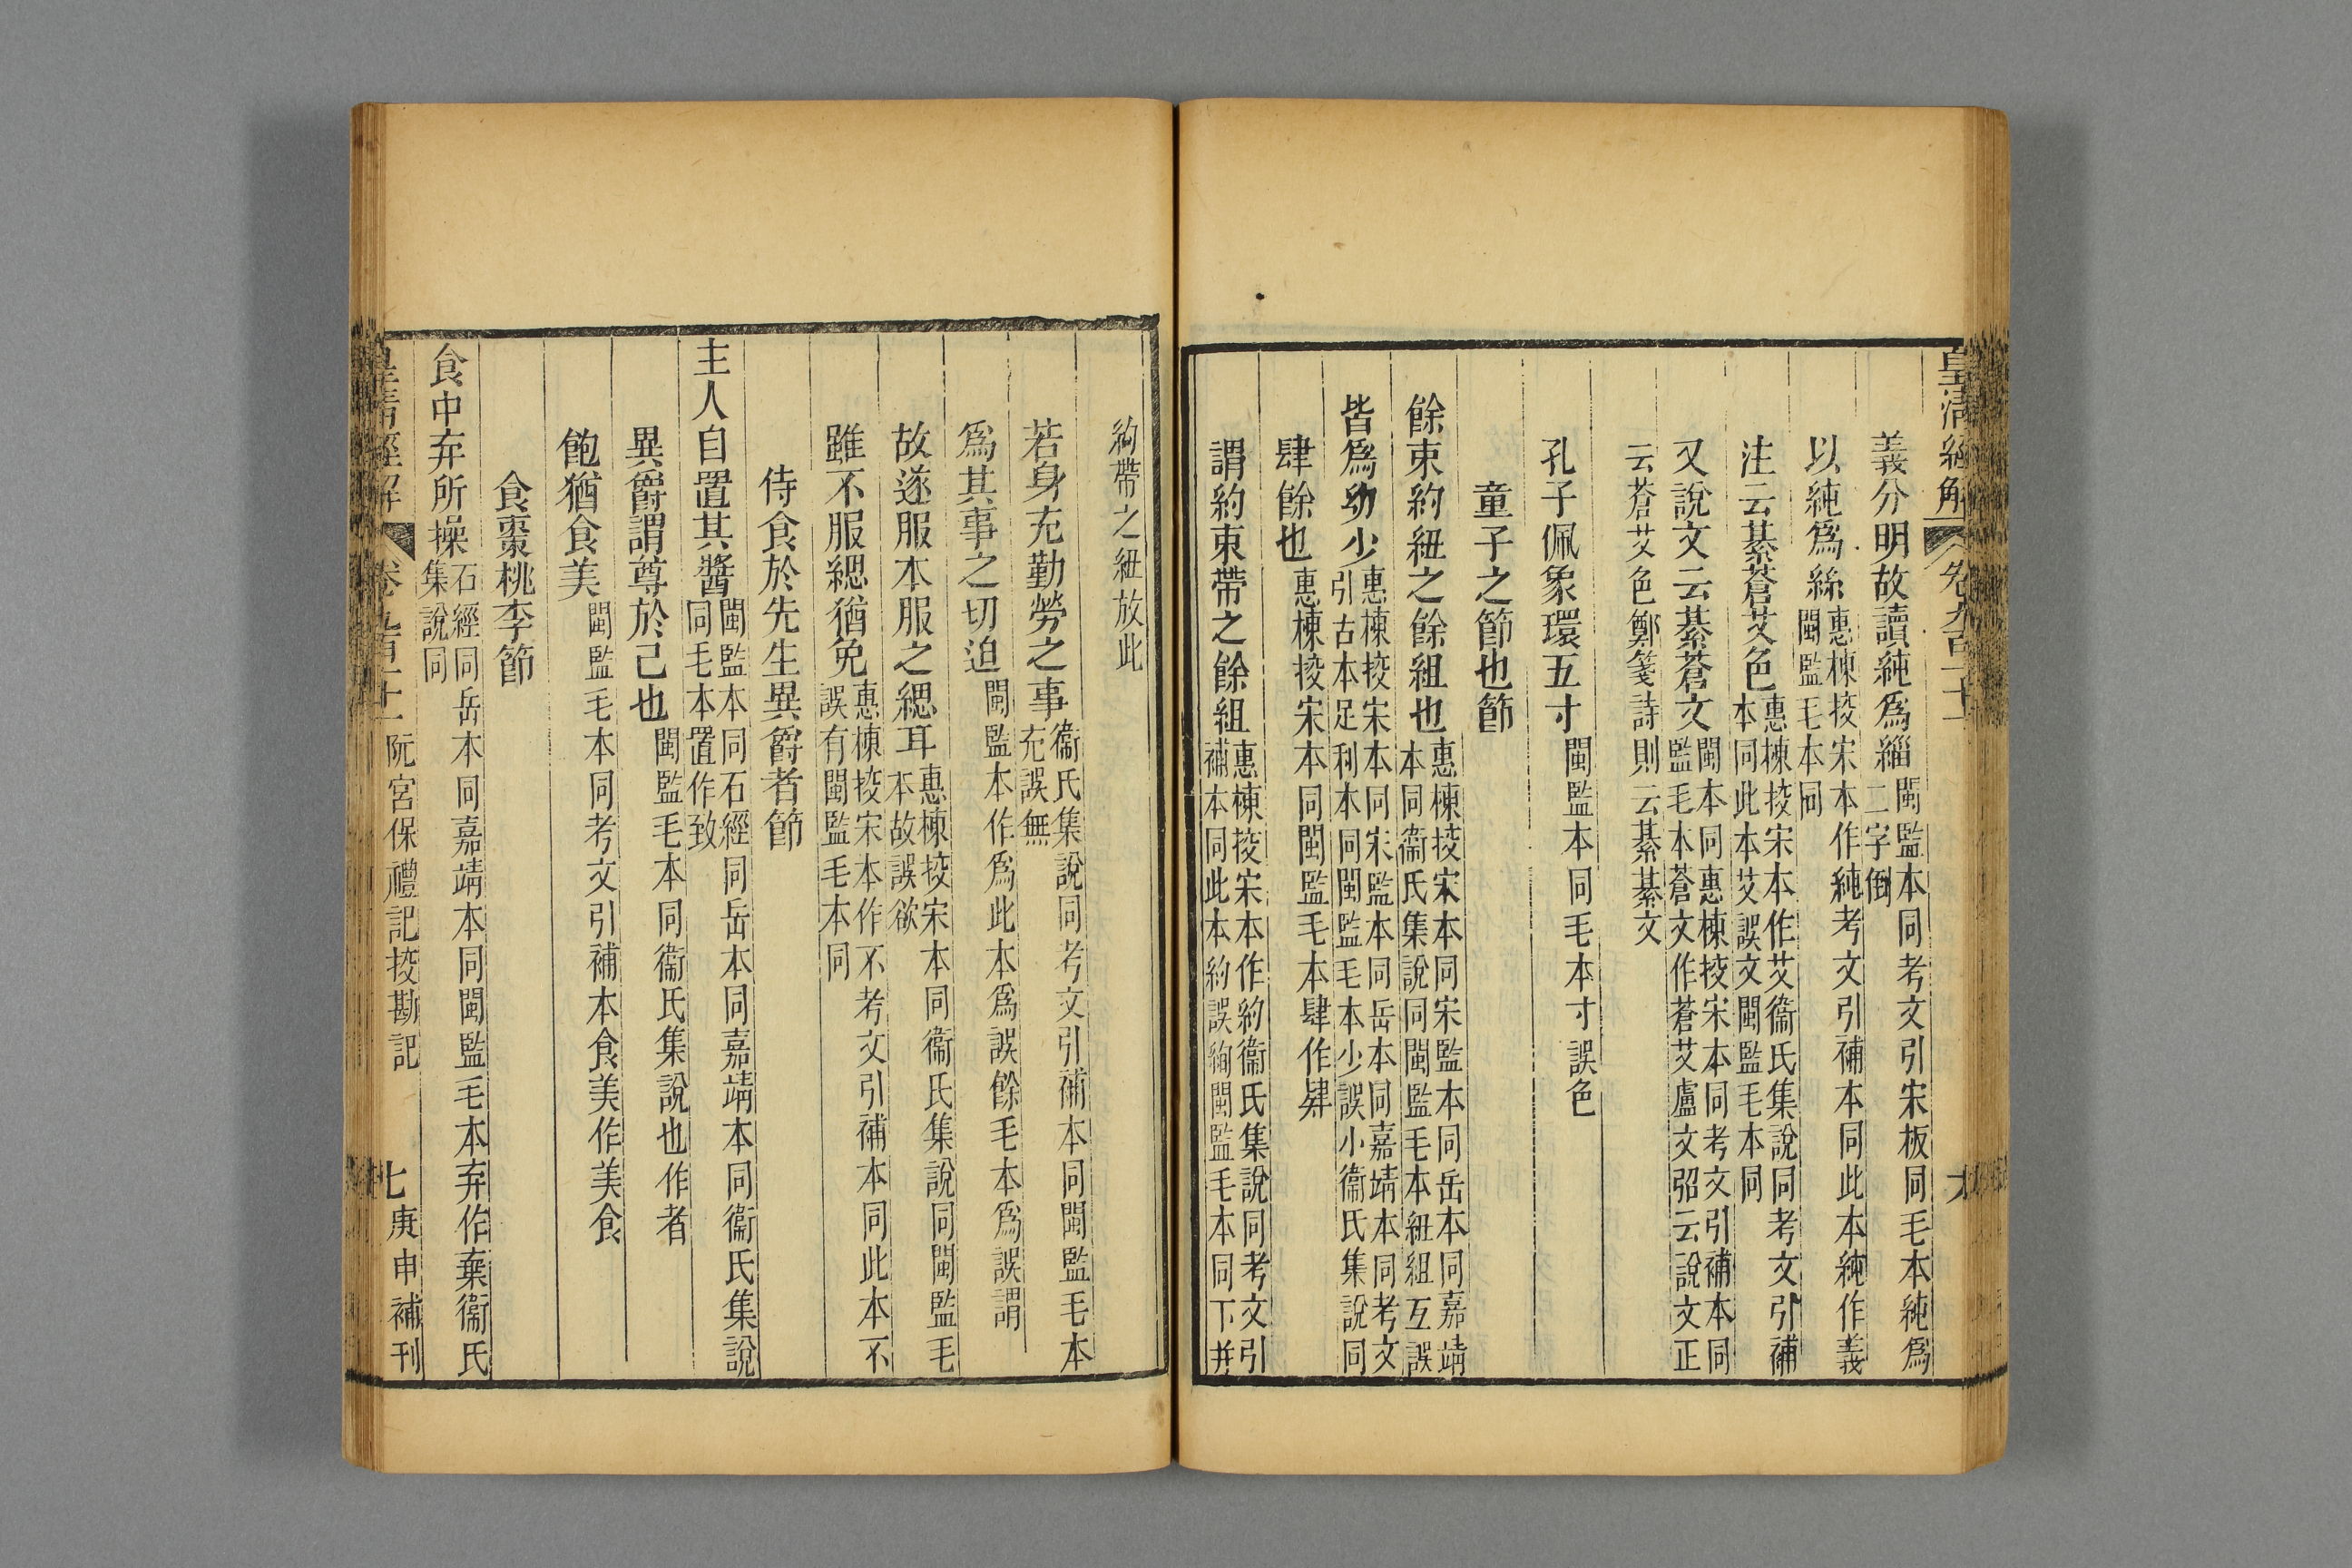 皇清經解 卷九百二十一
義分明故讀純爲緇 閩監本同考文引宋板同毛本純爲二字倒
以純爲絲 惠棟挍宋本作純考文引補本同此本純作義閩監毛本同
注云綦蒼艾色 惠棟挍宋本作艾衞氏集說同考文引補本同此本艾誤文閩監毛本同
又說文云綦蒼文 閩本同惠棟挍宋本同考文引補本同監毛本蒼文作蒼艾盧文弨云說文正
云蒼艾色鄭箋詩則云綦綦文
孔子佩象環五寸 閩監本同毛本寸誤色
童子之節也節
餘束約紐之餘組也 惠棟挍宋本同宋監本同岳本同嘉靖本同衞氏集說同閩監毛本紐組互誤
皆爲幼少 惠棟挍宋本同宋監本同岳本同嘉靖本同考文引古本足利本同閩監毛本少誤小衞氏集說同
肆餘也 惠棟挍宋本同閩監毛本肆作肄
謂約束帶之餘組 惠棟挍宋本作約衞氏集說同考文引補本同此本約誤絢閩監毛本同下幷
絇帶之紐放此
若身充勤勞之事 衞氏集說同考文引補本同閩監毛本充誤無
爲其事之切迫 閩監本作爲此本爲誤餘毛本爲誤謂
故遂服本服之緦耳 惠棟挍宋本同衞氏集說同閩監毛本故誤欲
雖不服緦猶免 惠棟挍宋本作不考文引補本同此本不誤有閩監毛本同
侍食於先生異爵者節
主人自置其醬 閩監本同石經同岳本同嘉靖本同衞氏集說同毛本置作致
異爵謂尊於己也 閩監毛本同衞氏集說也作者
飽猶食美 閩監毛本同考文引補本食美作美食
食棗桃李節
食中弃所操 石經同岳本同嘉靖本同閩監毛本弃作棄衞氏集說同
皇清經解 卷九百二十一 阮宮保禮記挍勘記 七 庚申補刊